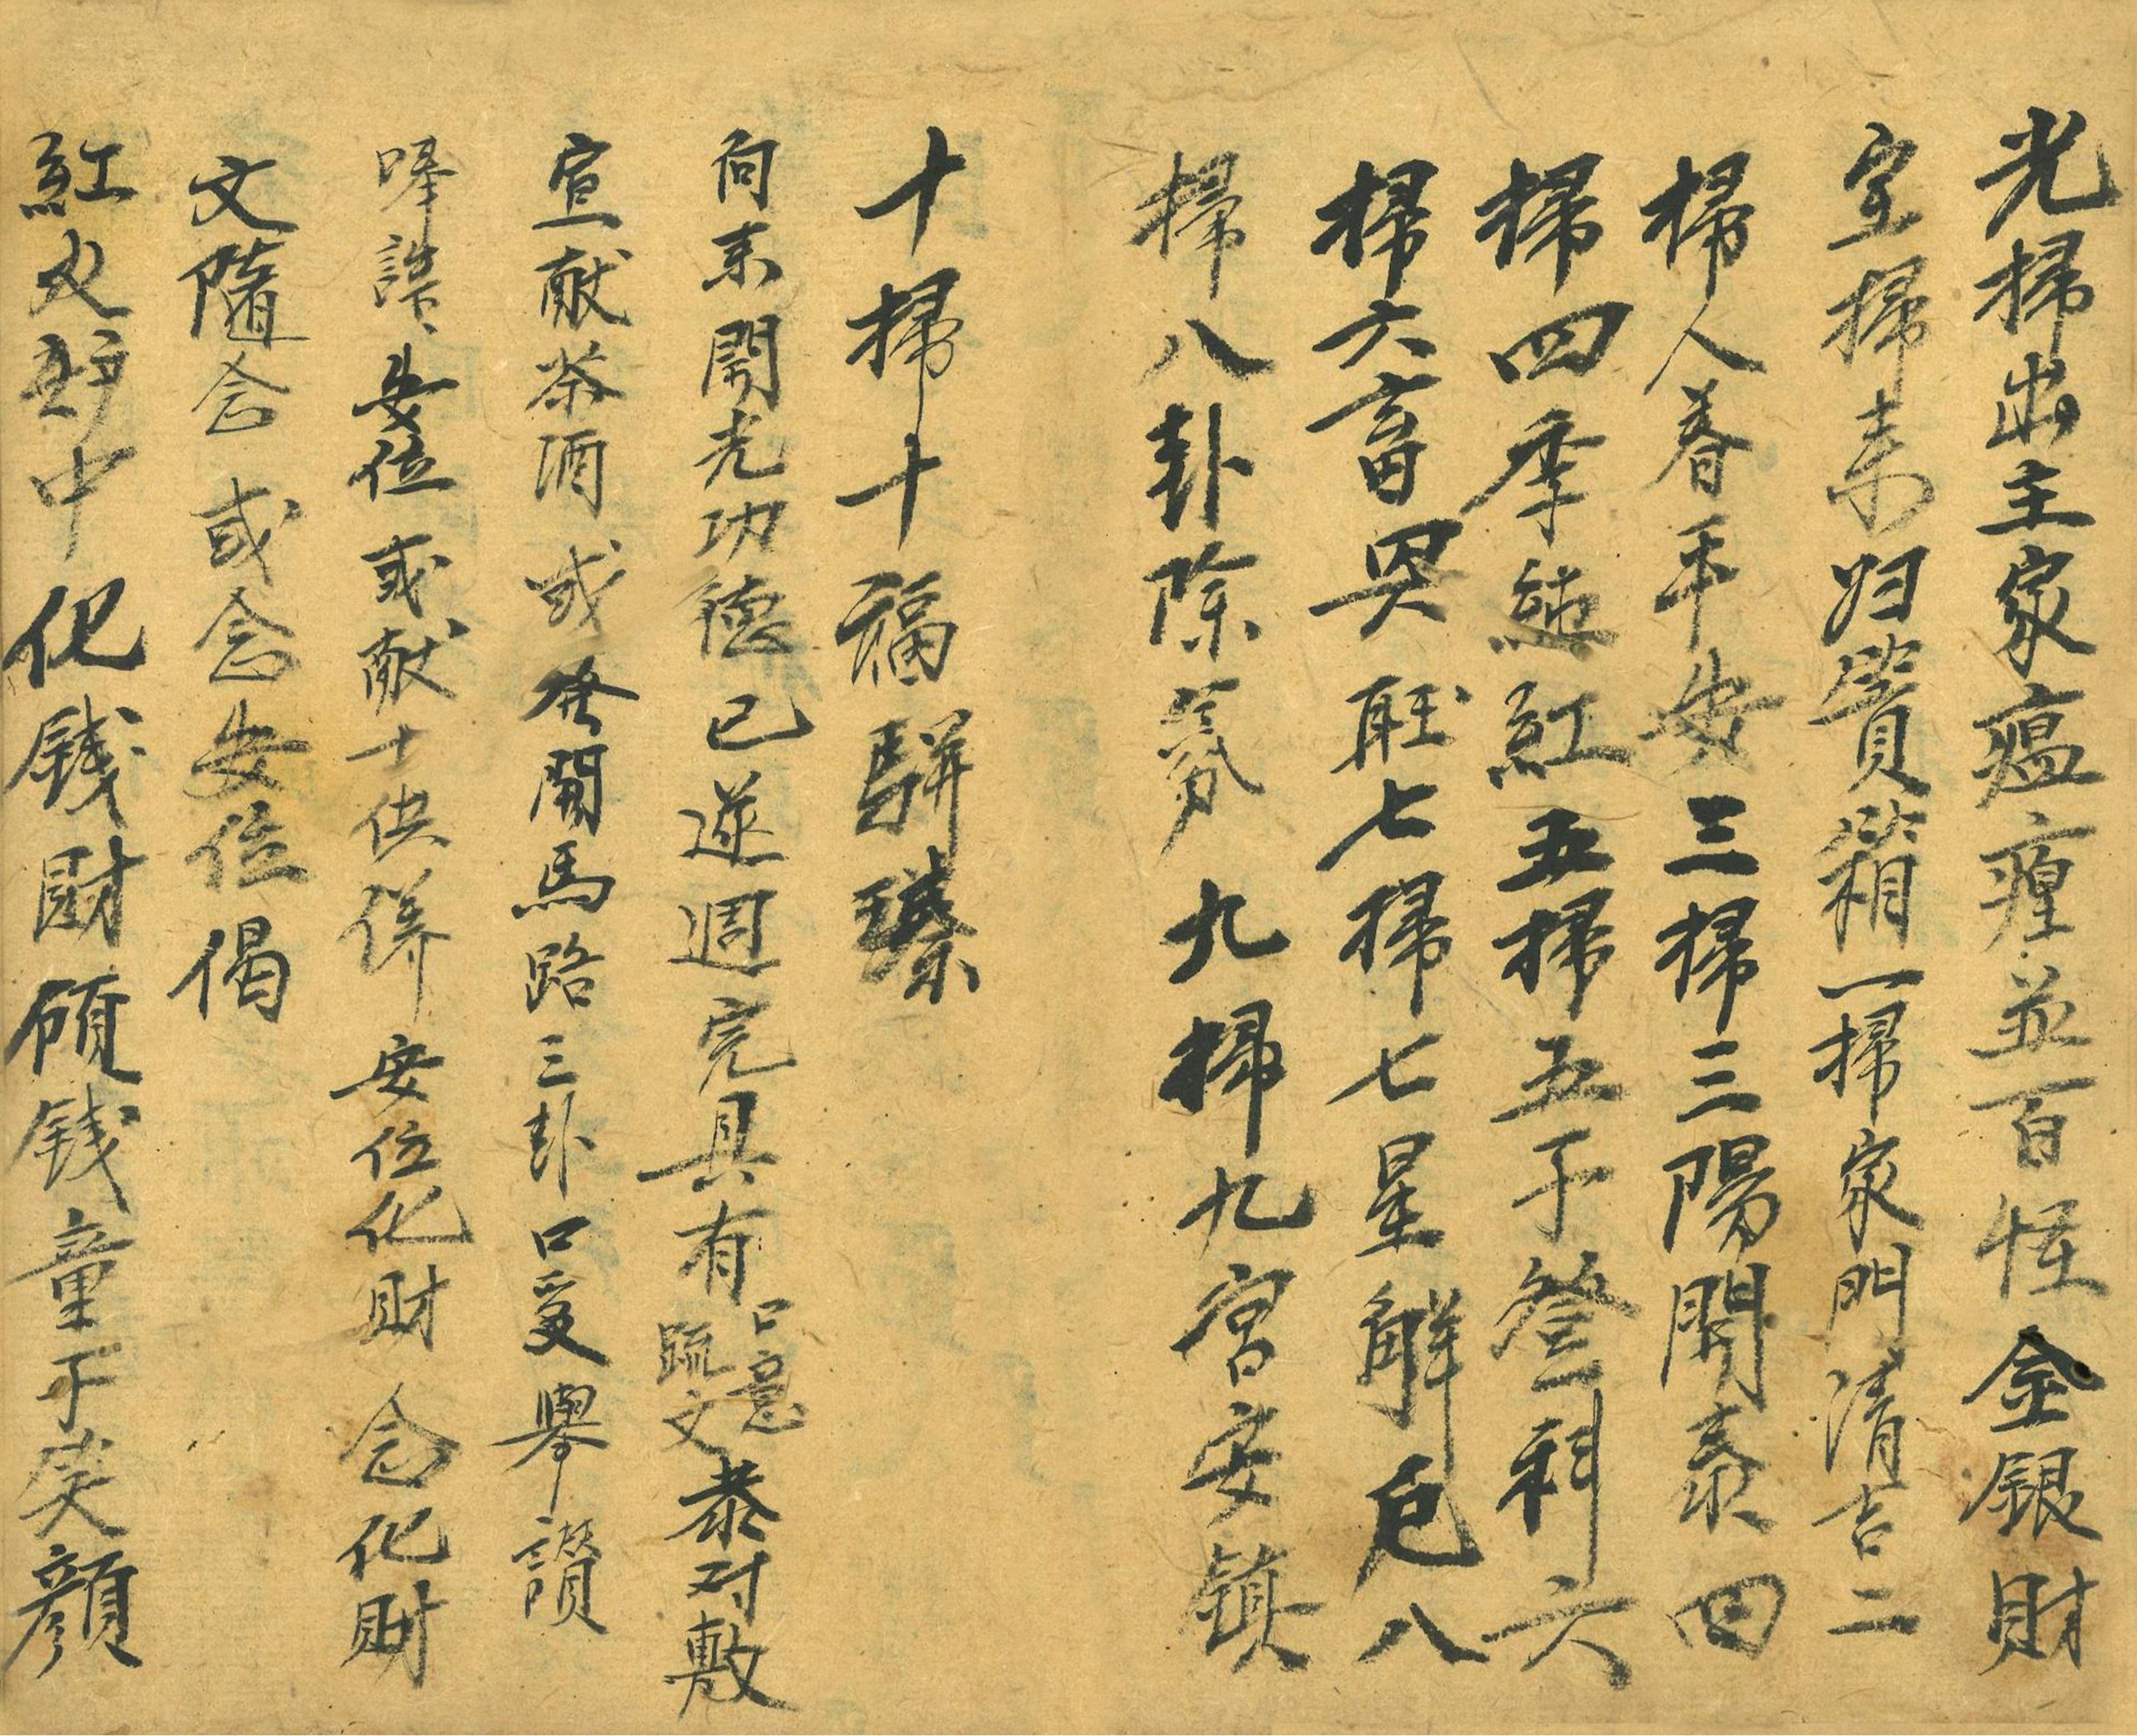 光掃出主家瘟瘟並百怪金銀財
宝掃来归貴箱一掃家門清吉二
掃人眷平安三掃三陽開泰四
掃四季純紅五掃五子登科六
掃六畜興旺七掃七星解厄八
掃八卦除氛九掃九宮安鎮
十掃十福駢臻
向来開光功德已遂週完具有口意疏文恭对敷
宣献茶酒或発開馬路三卦口受舉讚
安位或献十供俻安位化財念化財
文隨念或念安位偈
紅火炉中化銭財領銭童子笑顏